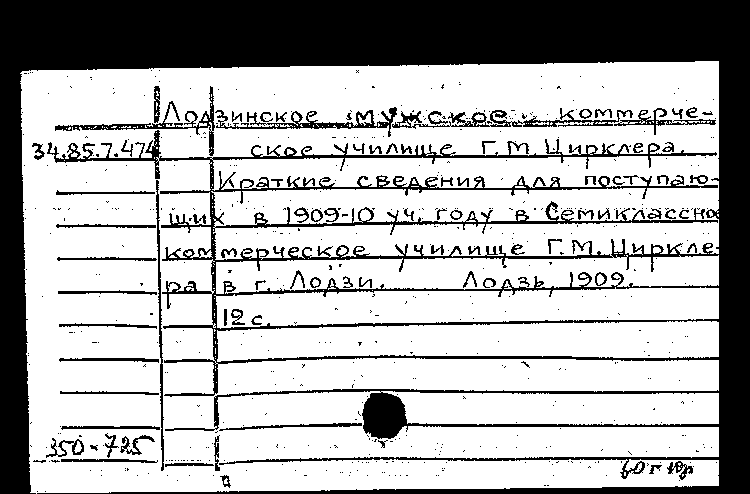 Лодзинское мужское коммерче-
34.85.7.474 ское училище Г.М. Цирклера.
Краткие сведения для поступаю-
щих в 1909-10 уч. году в Семиклассное
коммерческое училище Г.М. Циркле-
ра в г. Лодзи. Лодзь, 1909.
12 с.
350-725